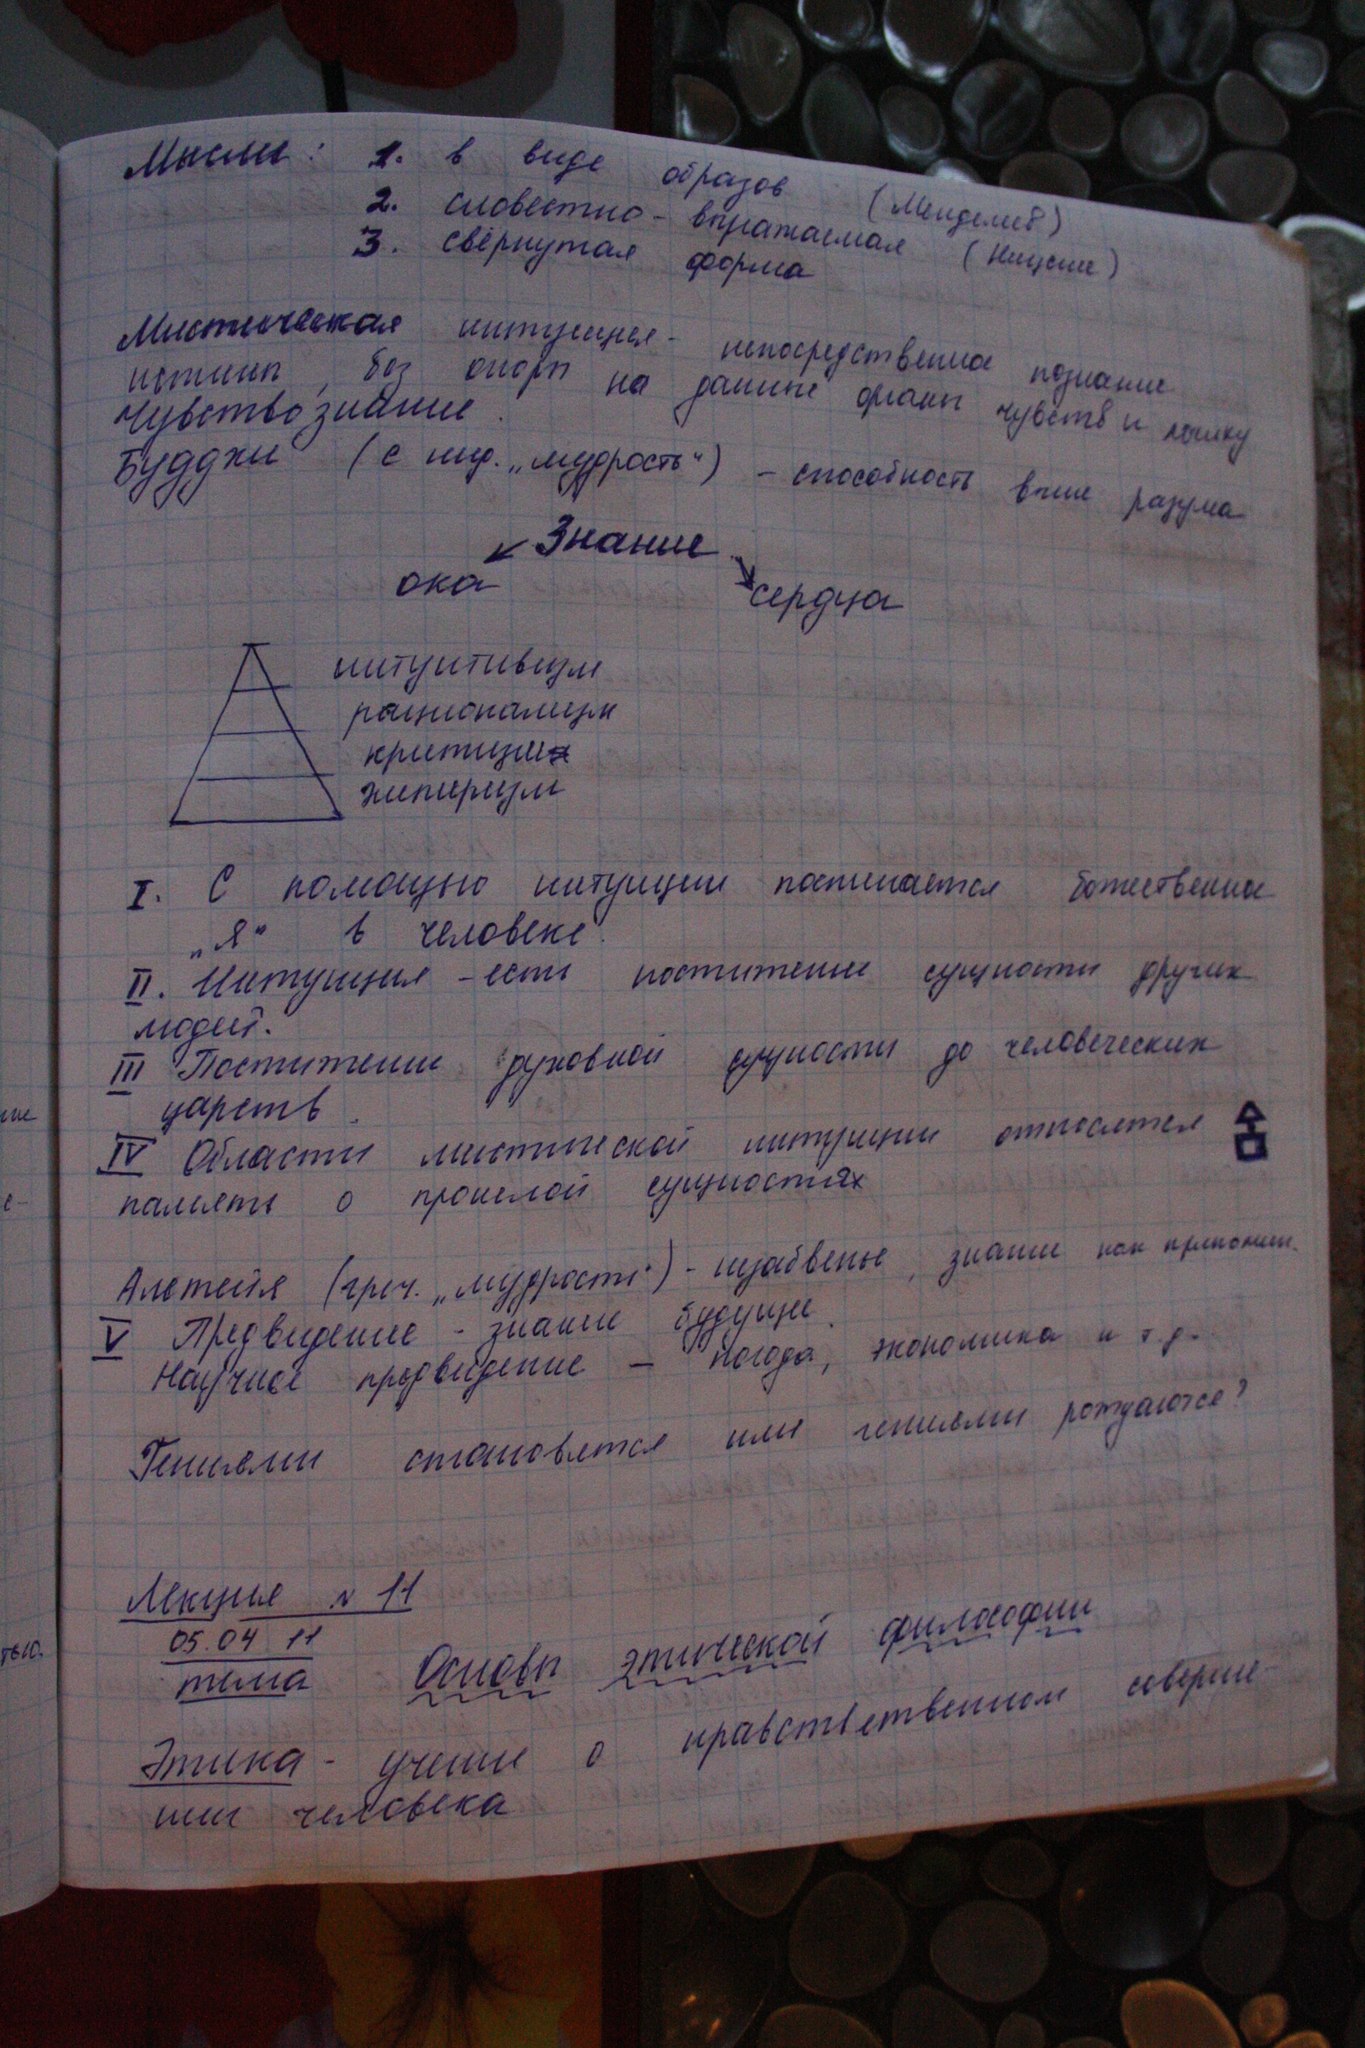 Мысли: 1. в виде образов (Менделеев)
2. словестно-выражаемая (Ницше)
3. свёрнутая форма
Мистическая интуиция - непосредственное познание
истины, без опоры на данные органы чувств и логику
Чувствознание.
Буддхи (с инд. „мудрость") - способность выше разума
Знание
ока сердца
интуитивизм
рационализм
критицизм
эмпиризм
I. С помощью интуиции постигается божественное
„Я" в человеке.
II. Интуиция - есть постижение сущности других
людей.
III Постижение духовной сущности до человеческих
царств.
IV Области мистической интуиции относятся
память о прошлой сущностях
Алетейя (греч. „мудрость") - незабвенье, знание как припомин.
V Предвидение - знание будущее.
Научное предвидение - погода, экономика и т.д.
Гениями становятся или гениями рождаются?
Лекция № 11
05.04 11
тема Основы этической философии
Этика - учение о нравственном соверше-
нии человека
тью.